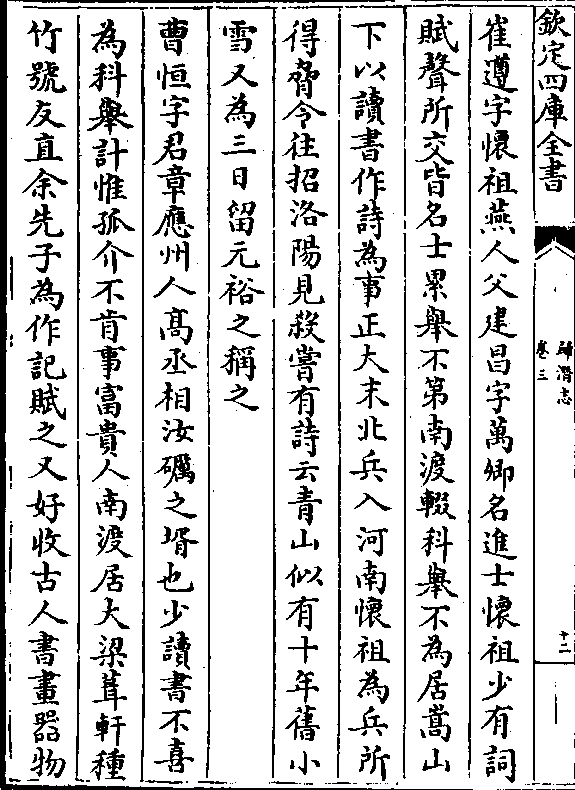 欽定四庫全書
歸潛志
卷三
十二
崔遵字懷祖燕人父建昌字萬卿名進士懷祖少有詞
賦聲所交皆名士累舉不第南渡輟科舉不為居嵩山
下以讀書作詩為事正大末北兵入河南懷祖為兵所
得脅令往招洛陽見殺嘗有詩云青山似有十年舊小
雪又為三日留元裕之稱之
曹恒字君章應州人髙丞相汝礪之壻也少讀書不喜
為科舉計惟孤介不肯事富貴人南渡居大梁葺軒種
竹號友直余先子為作記賦之又好收古人書畫器物